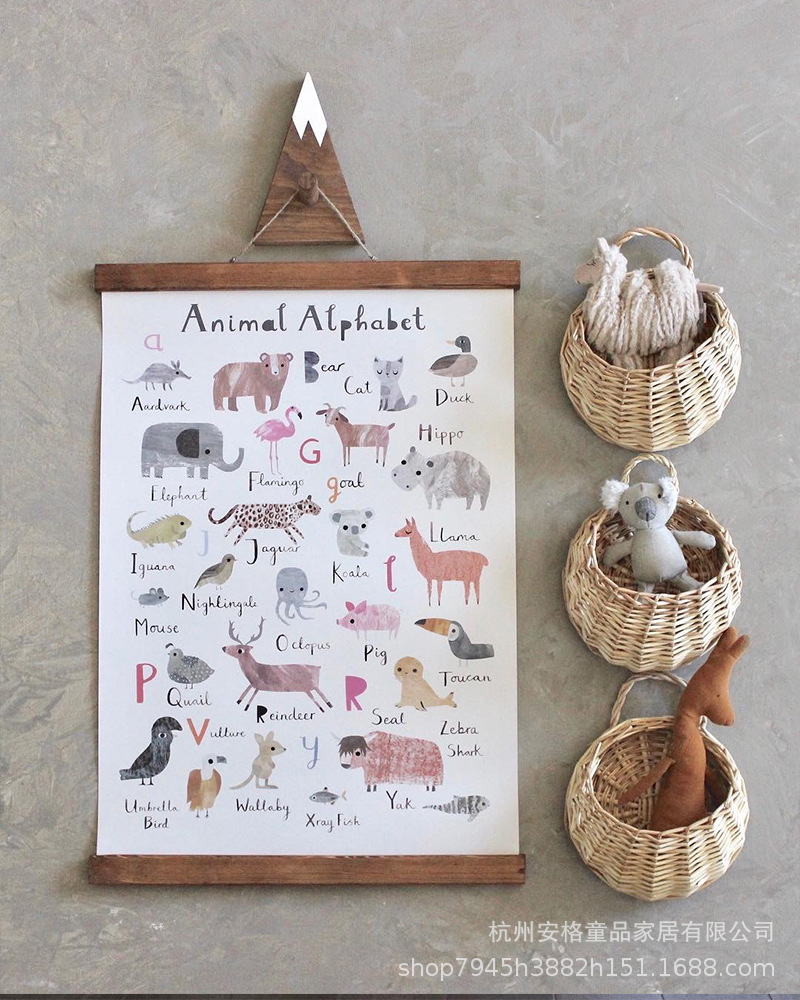 Animal Alphabet
a
Aardvark
Bear
Cat
Duck
Elephant
Flamingo
G
goat
Hippo
Iguana
J
Jaguar
Koala
l
Llama
Mouse
Nightingale
Octopus
Pig
Toucan
P
Quail
Reindeer
R
Seal
Zebra
Shark
V
Vulture
Umbrella
Bird
Wallaby
y
Xray Fish
Yak
杭州安格童品家居有限公司
shop7945h3882h151.1688.com